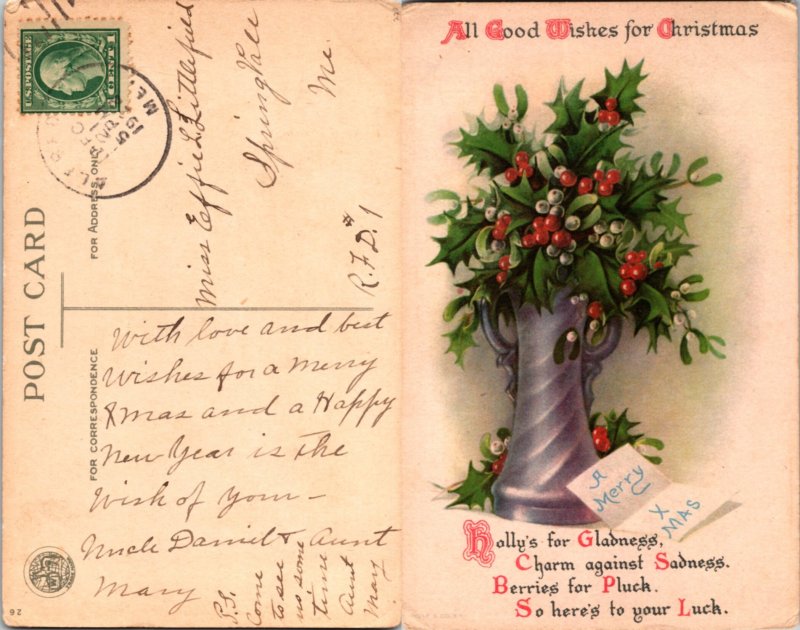 U.S. POSTAGE
1 CENT 1
POST CARD
FOR ADDRESS ONLY
Miss Effie L Littlefield
Springvale
Me.
R.F.D. #1
FOR CORRESPONDENCE
With love and best
Wishes for a Merry
Xmas and a Happy
New Year is the
Wish of your —
Uncle Daniel & Aunt
Mary
P.S.
Come
to see
us some
time
Aunt
Mary
92
All Good Wishes for Christmas
A
Merry
X
MAS
Holly's for Gladness,
Charm against Sadness.
Berries for Pluck.
So here's to your Luck.